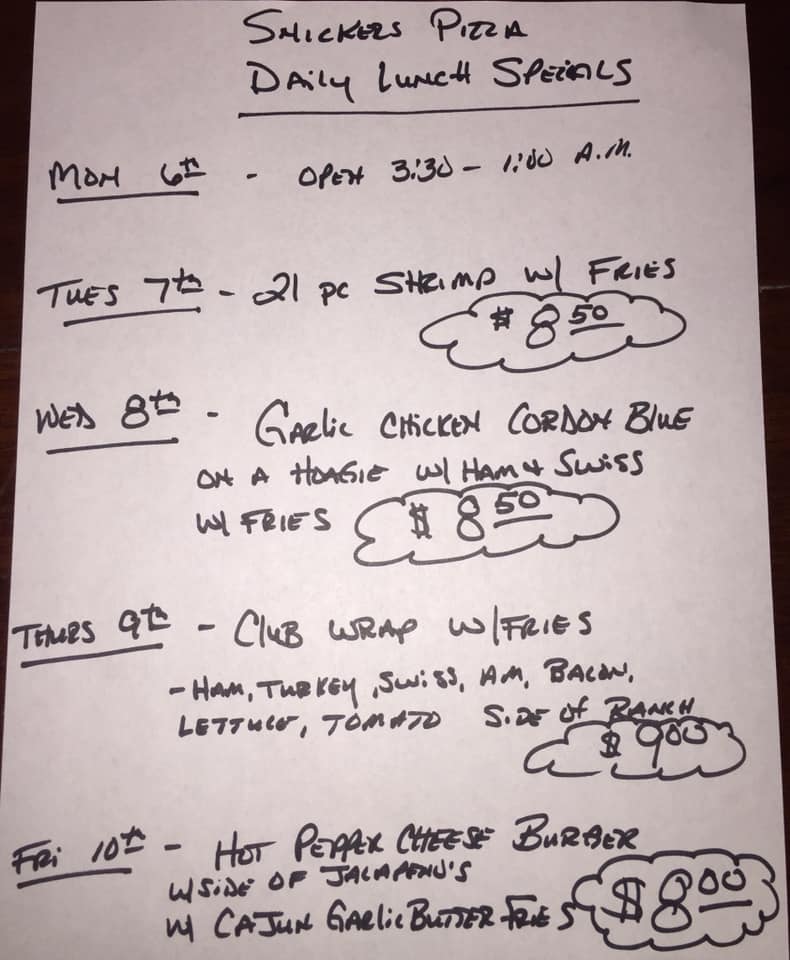 SNICKERS PIZZA
DAILY LUNCH SPECIALS
MON 6th - OPEN 3:30 - 1:00 A.M.
TUES 7th - 21 PC SHRIMP W/ FRIES
$8.50
WED 8th - GARLIC CHICKEN CORDON BLUE
ON A HOAGIE W/ HAM & SWISS
W/ FRIES $8.50
THURS 9th - CLUB WRAP W/FRIES
- HAM, TURKEY, SWISS, AM, BACON,
LETTUCE, TOMATO SIDE OF RANCH
$9.00
FRI 10th - HOT PEPPER CHEESE BURGER
W/SIDE OF JALAPENO'S
W/ CAJUN GARLIC BUTTER FRIES $8.00